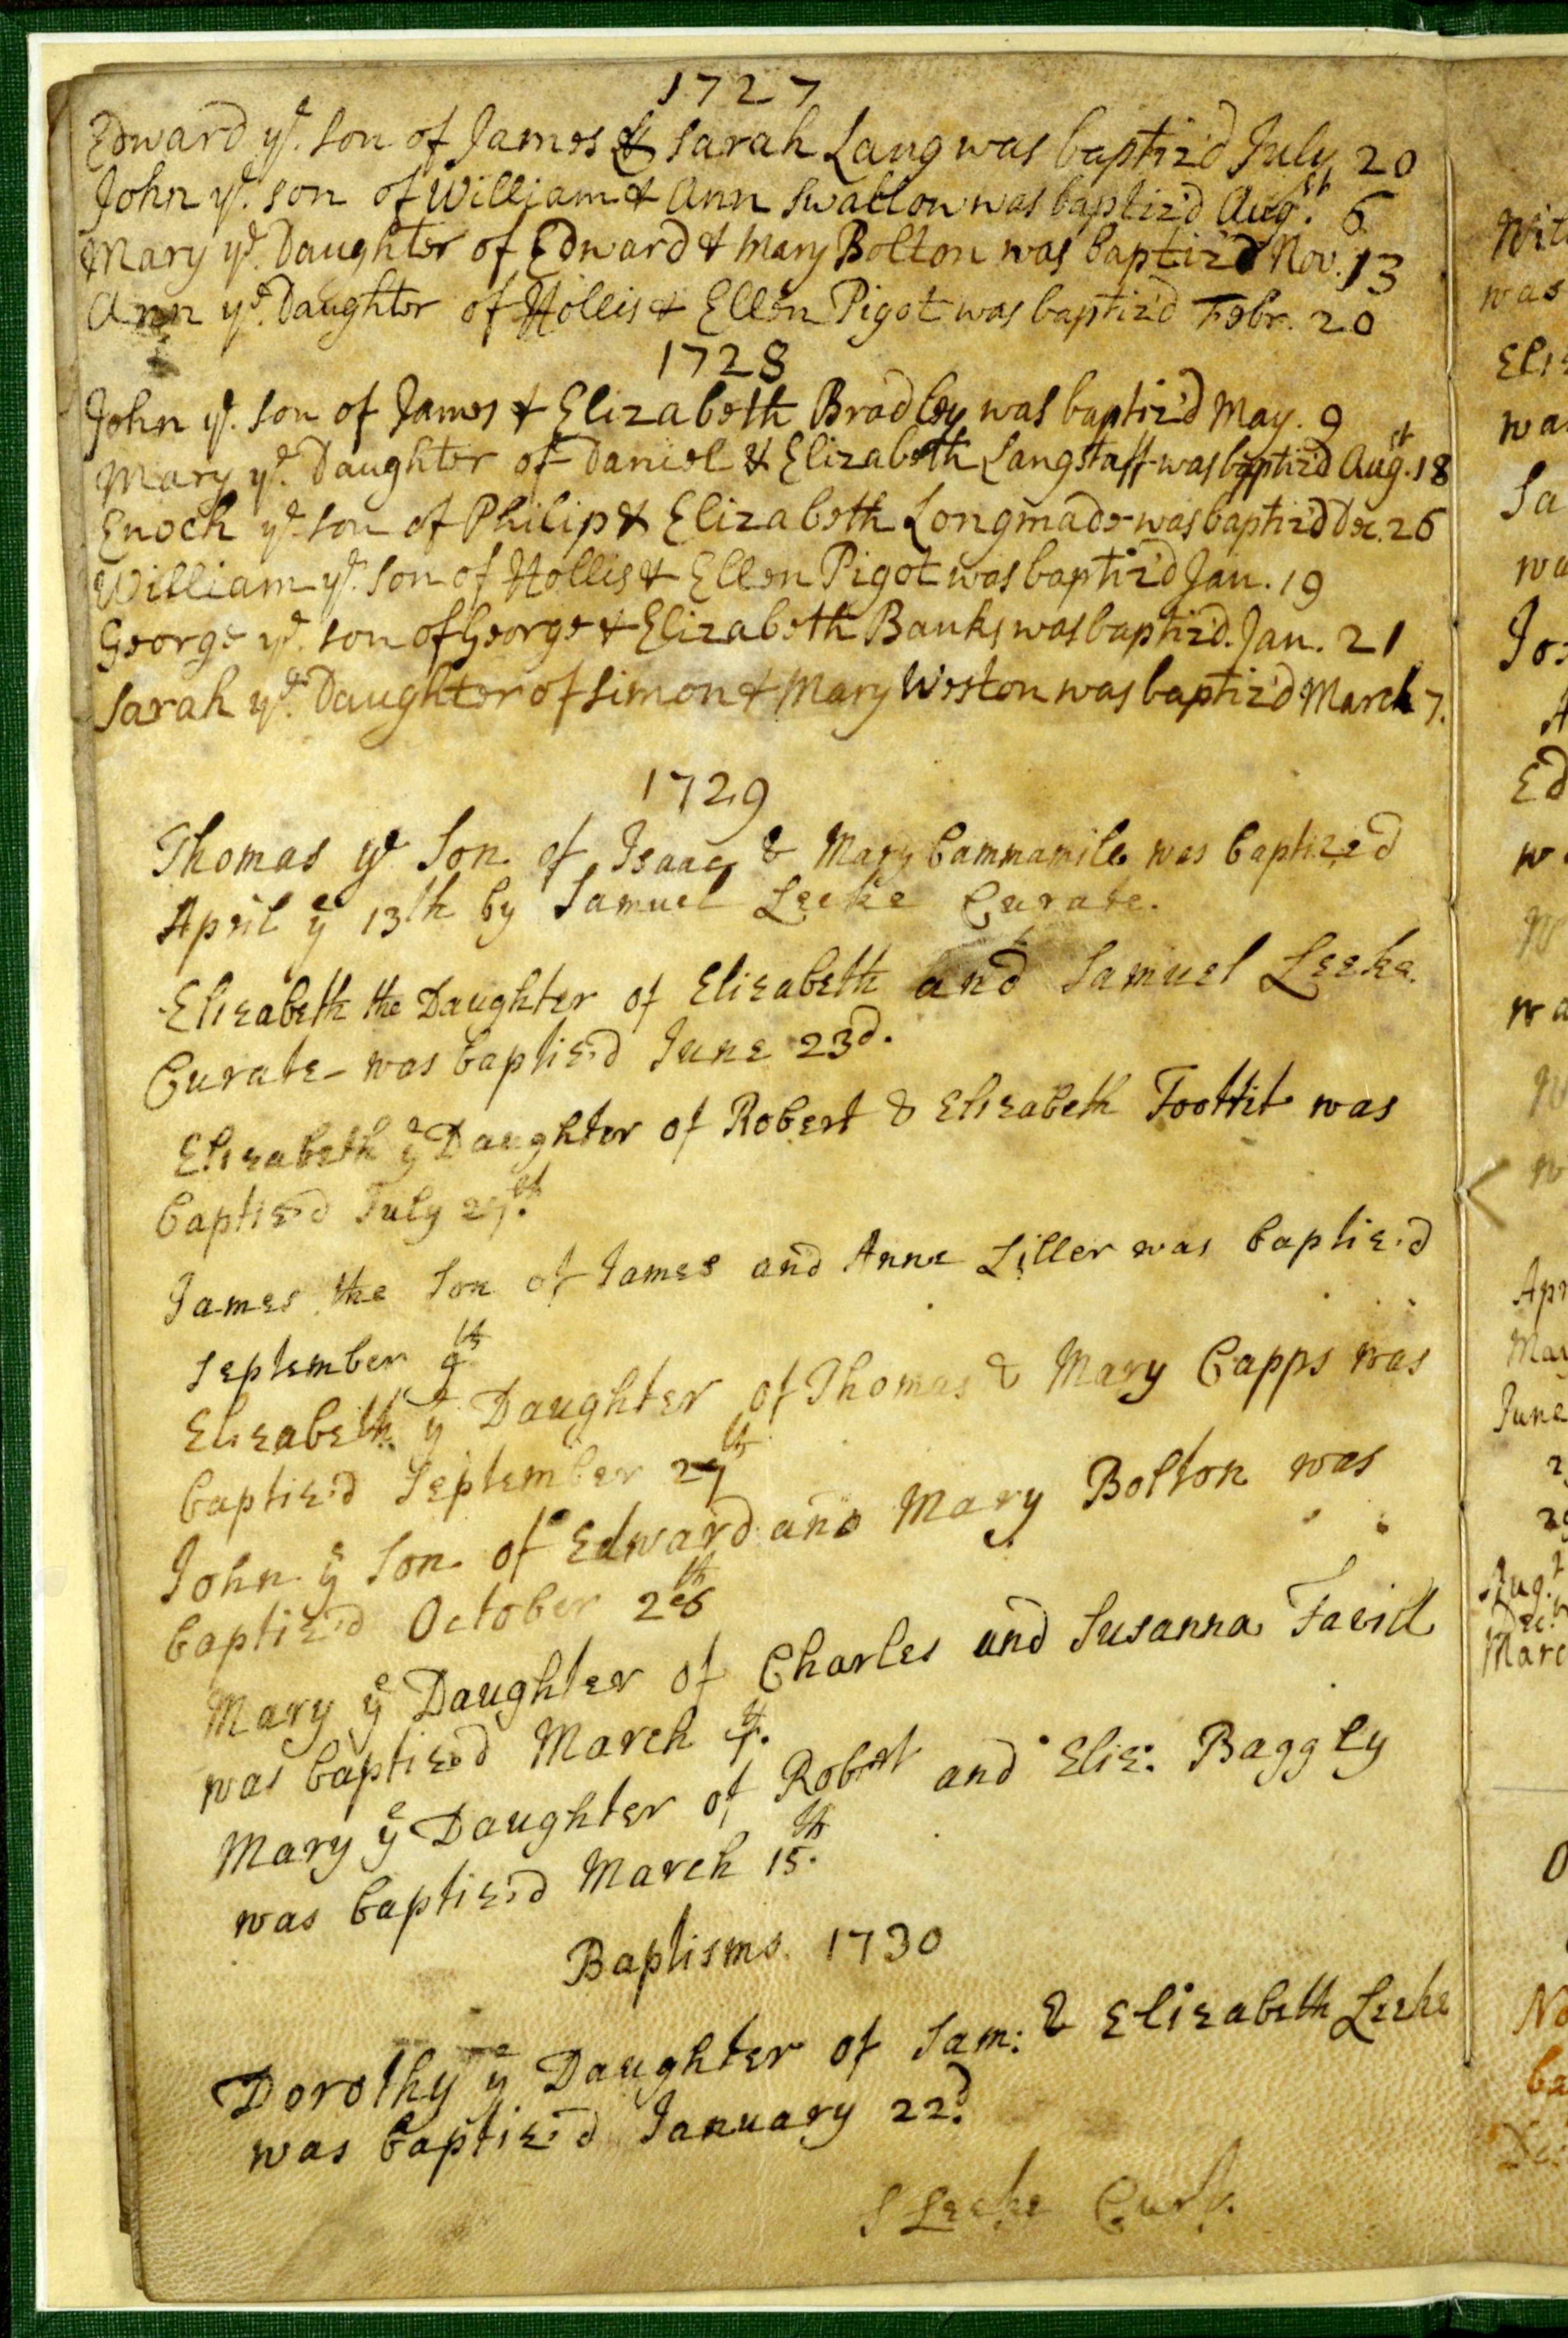 1727
Edward ye. son of James & Sarah Lang was baptiz'd July 20
John ye. son of William & Ann Swallow was baptiz'd Augst. 6
Mary ye. Daughter of Edward & Mary Bolton was baptiz'd Nov. 13
Ann ye. Daughter of Hollis & Ellen Pigot was baptiz'd Febr. 20
1728
John ye. son of James & Elizabeth Bradley was baptiz'd May. 9
Mary ye. Daughter of Daniel & Elizabeth Langstaff was baptiz'd Augst. 18
Enoch ye son of Philip & Elizabeth Longmade was baptiz'd Dec. 26
William ye. son of Hollis & Ellen Pigot was baptiz'd Jan. 19
George ye. son of George & Elizabeth Banks was baptiz'd. Jan. 21
Sarah ye. Daughter of Simon & Mary Weston was baptiz'd March 7.
1729
Thomas ye Son of Isaac & Mary Cammamile was baptized
April ye 13th by Samuel Leeke Curate.
Elizabeth the Daughter of Elizabeth and Samuel Leeke
Curate was baptiz'd June 23d.
Elizabeth ye Daughter of Robert & Elizabeth Foottit was
baptiz'd July
James the Son of James and Anne Liller was baptiz'd
September 9th
Elizabeth ye Daughter of Thomas & Mary Capps was
baptiz'd September 27th
John ye Son of Edward and Mary Bolton was
baptiz'd October
Mary ye Daughter of Charles and Susanna
was baptiz'd March
Mary ye Daughter of Robert and Eliz: Baggly
was baptiz'd March 15th.
Baptisms. 1730
Dorothy ye Daughter of Sam: & Elizabeth Leeke
was baptiz'd January 22d.
S Leeke Curt.
Apr
June
Marc